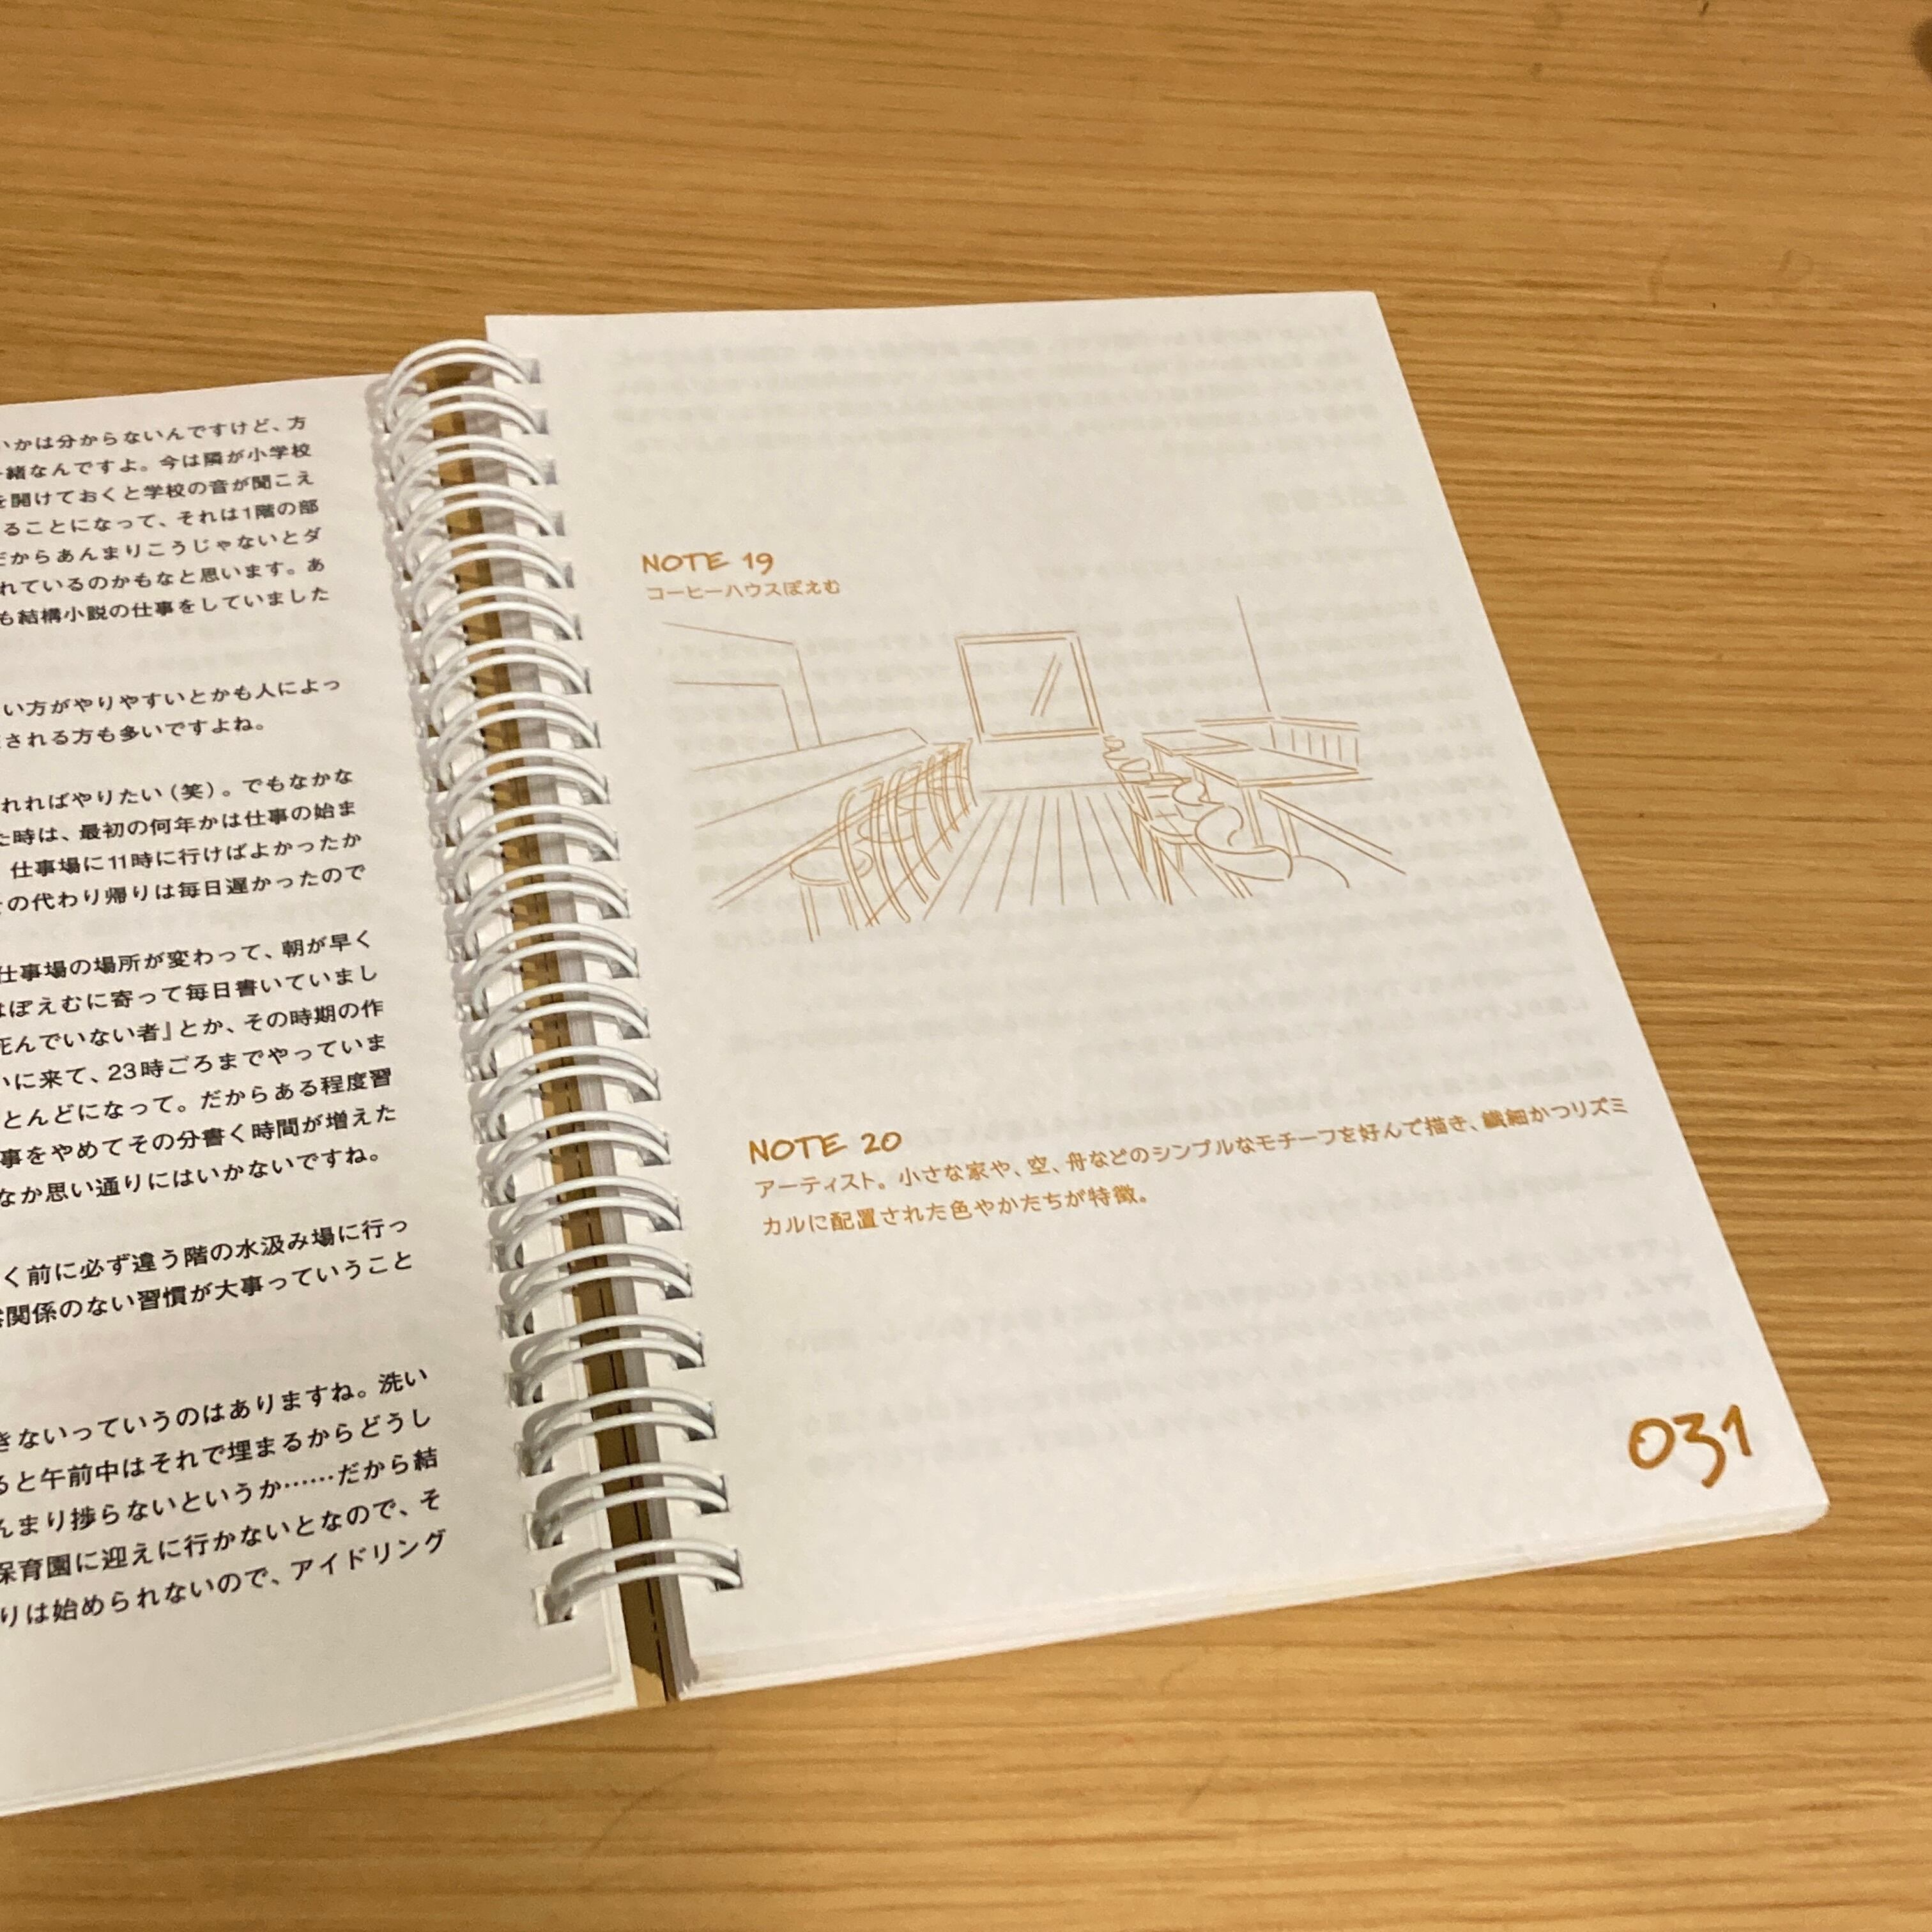 いかは分からないんですけど、方
緒なんですよ。今は隣が小学校
を開けておくと学校の音が聞こえ
ることになって、それは1階の部
だからあんまりこうじゃないとダ
れているのかもなと思います。あ
も結構小説の仕事をしていました
い方がやりやすいとかも人によっ
される方も多いですよね。
れればやりたい（笑）。でもなかな
た時は、最初の何年かは仕事の始ま
仕事場に11時に行けばよかったか
その代わり帰りは毎日遅かったので
仕事場の場所が変わって、朝が早く
はぽえむに寄って毎日書いていまし
死んでいない者』とか、その時期の作
いに来て、23時ごろまでやっていま
とんどになって。だからある程度習
事をやめてその分書く時間が増えた
なか思い通りにはいかないですね。
く前に必ず違う階の水汲み場に行っ
関係のない習慣が大事っていうこと
きないっていうのはありますね。洗い
ると午前中はそれで埋まるからどうし
んまり捗らないというか……だから結
保育園に迎えに行かないとなので、そ
りは始められないので、アイドリング
NOTE 19
コーヒーハウスぽえむ
NOTE 20
アーティスト。小さな家や、空、舟などのシンプルなモチーフを好んで描き、繊細かつリズミ
カルに配置された色やかたちが特徴。
031